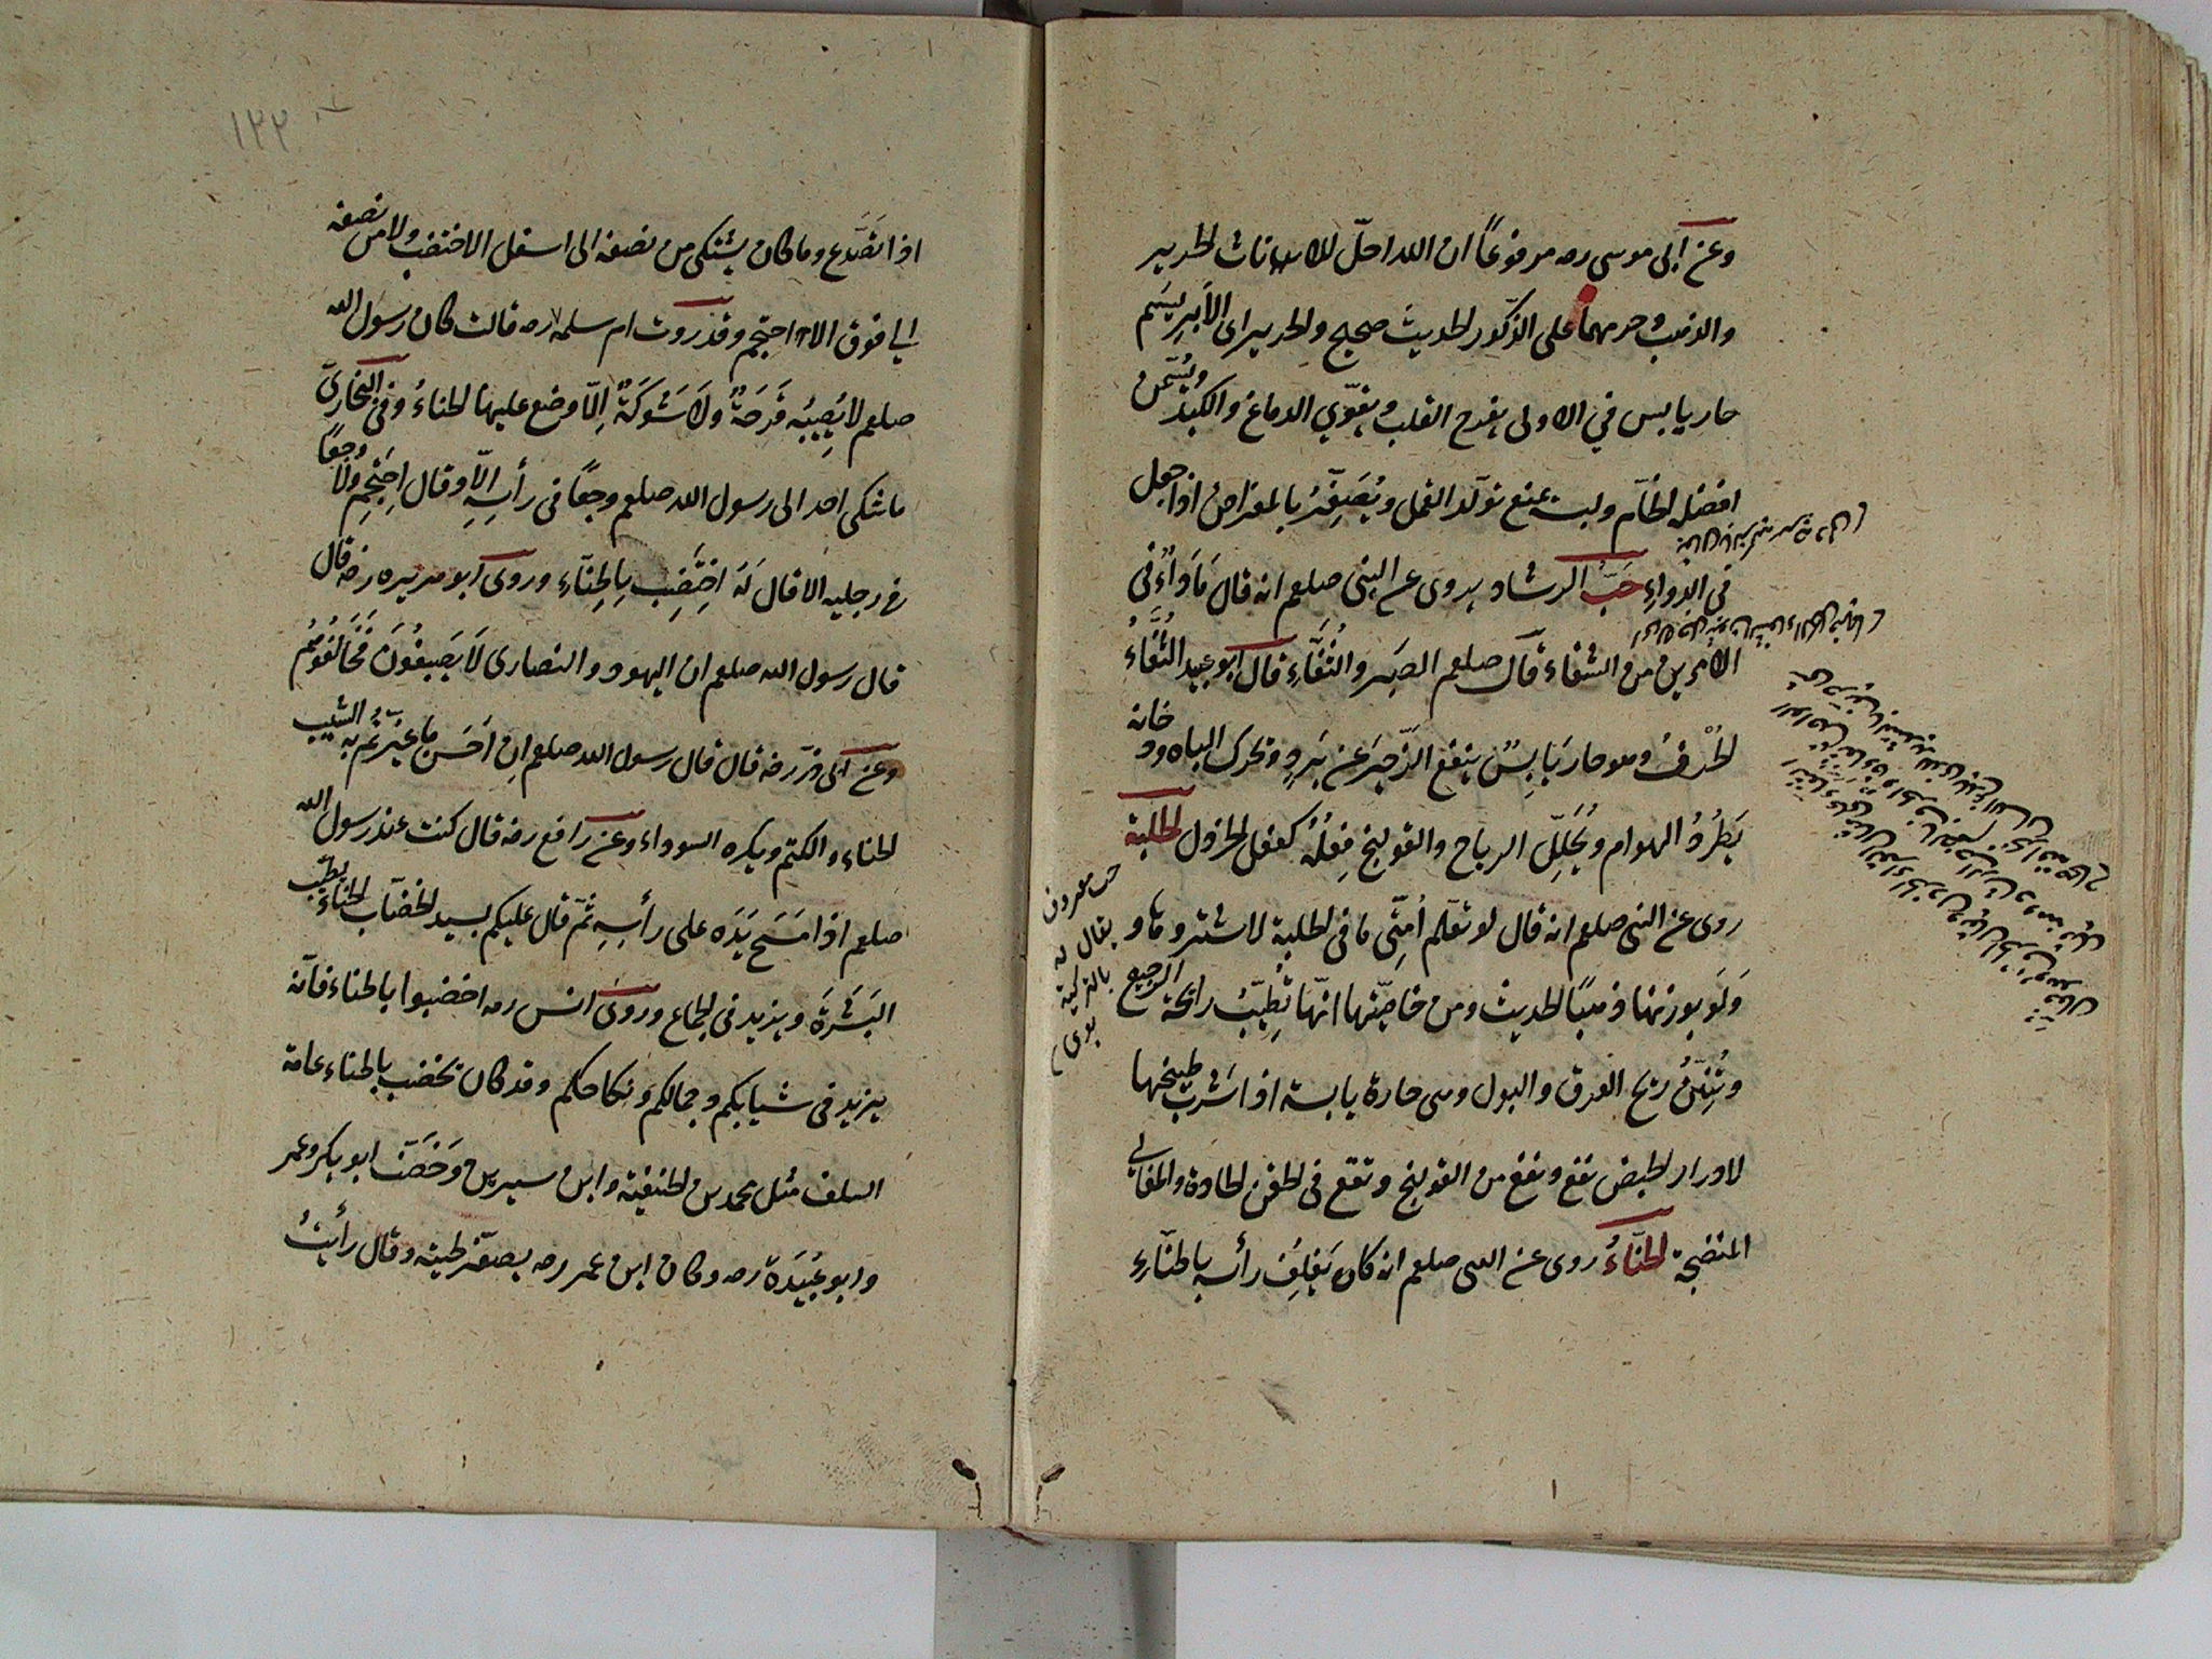 وعن ابى موسى رضه مرفوعًا ان الله احلّ للاناث الحرير
والذهب وحرمهما على الذّكور الحديث صحيح والحرير اى الأبريسم
حار يابس في الاولى يفرح القلب ويقوّي الدماغ والكبد ويُسَمن
افضله الخآم ولبسه يمنع تولّد القمل ويُصَيّرُ بالمقراض اذا جعل
في الدواءِ حَبُّ الرشاد يروى عن النبى صلعم انه قال مَا ذَاءُ فى
الأمّرين من الشفاء قال صلعم الصَبر والثُفّاءِ قال ابو عبيد الثُفَّاءُ
الحُرْفُ وهو حار يَابِسٌ ينفع الزّحِيرَ عن بَردٍ ويحرك الباه ودخانه
يَطرُدُ الهوام ويُحَلِّل الرياح والقولنج فِعلُهُ كفعل الخردل الحُلبة
روى عن النبى صلعم انه قال لو تعلم اُمّتِى ما فى الحلبة لاشتروها
وَلَو بوزنها ذهبًا الحديث ومن خاصّيتها انّها تُطِيّبُ رائحة الرجيع
وتُنِتنُ ريح العرق والبول وهى حارة يابسة اذا شرب طبيخها
لادرار الحيض نفع ونفع من القولنج وتقع فى الحقن الحادة والمغالى
المنضجة الحنّاءُ روى عن النبى صلعم انه كان يَغلِفَ رأسه بالحنّاءِ
حب معروف
يقال له
بالتركية
بوى
١٢٢
اذا تصَّدع وما كان يشتكى من نصفه الى اسفل الا اختضب ولا من نصفه
الى فوق الا احتجم وقد روت ام سلمه رضه قالت كان رسول الله
صلعم لا يُصِيبُه قَرحَةٌ ولا شَوكَةٌ اِلاّ وضع عليها الحناءُ وفى البُخارىّ
ما شكى احد الى رسول الله صلعم وجعًا فى رأسِهِ اِلّا وقال اِحتَجِم ولا وجعًا
فى رجليه الا قال لَهُ اِختَضِب بِالحِنّآءِ وروى ابو هريره رضه قال
قال رسول الله صلعم ان اليهود والنصارى لا يَصبغُونَ فَخَالِفُوهُم
وعن ابى ذرّ رضه قال قال رسول الله صلعم اِن اَحسَن ما غيّرتُم به الشيب
الحناء والكتم ويكره السوداء وعن رافع رضه قال كنت عند رسول الله
صلعم اذا مَسَح يَدَه على رأسِهِ ثُمّ قال عليكم بسيد الخضآب الحناءُ يطيّب
البَشَرَة ويزيد فى الجماع وروى انس رضه اخضبوا بالحناء فانّه
يزيد فى شبابكم وجمالكم ونكاحكم وقد كان يخضب بالحناء عامة
السلف مثل محمد بن الحنفية وابن سيرين وَخَضَبَ ابو بكر وعمر
وابو عُبَيدَة رضه وكان ابن عمر رضه يصفّر لحيته وقال رأيتُ